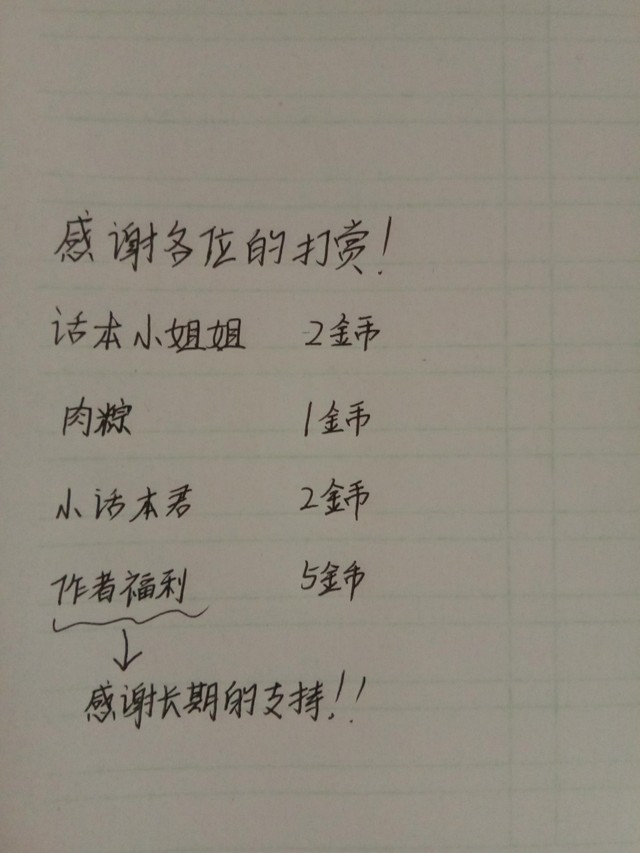 感谢各位的打赏!
话本小姐姐 2金币
肉粽 1金币
小话本君 2金币
作者福利 5金币
感谢长期的支持!!